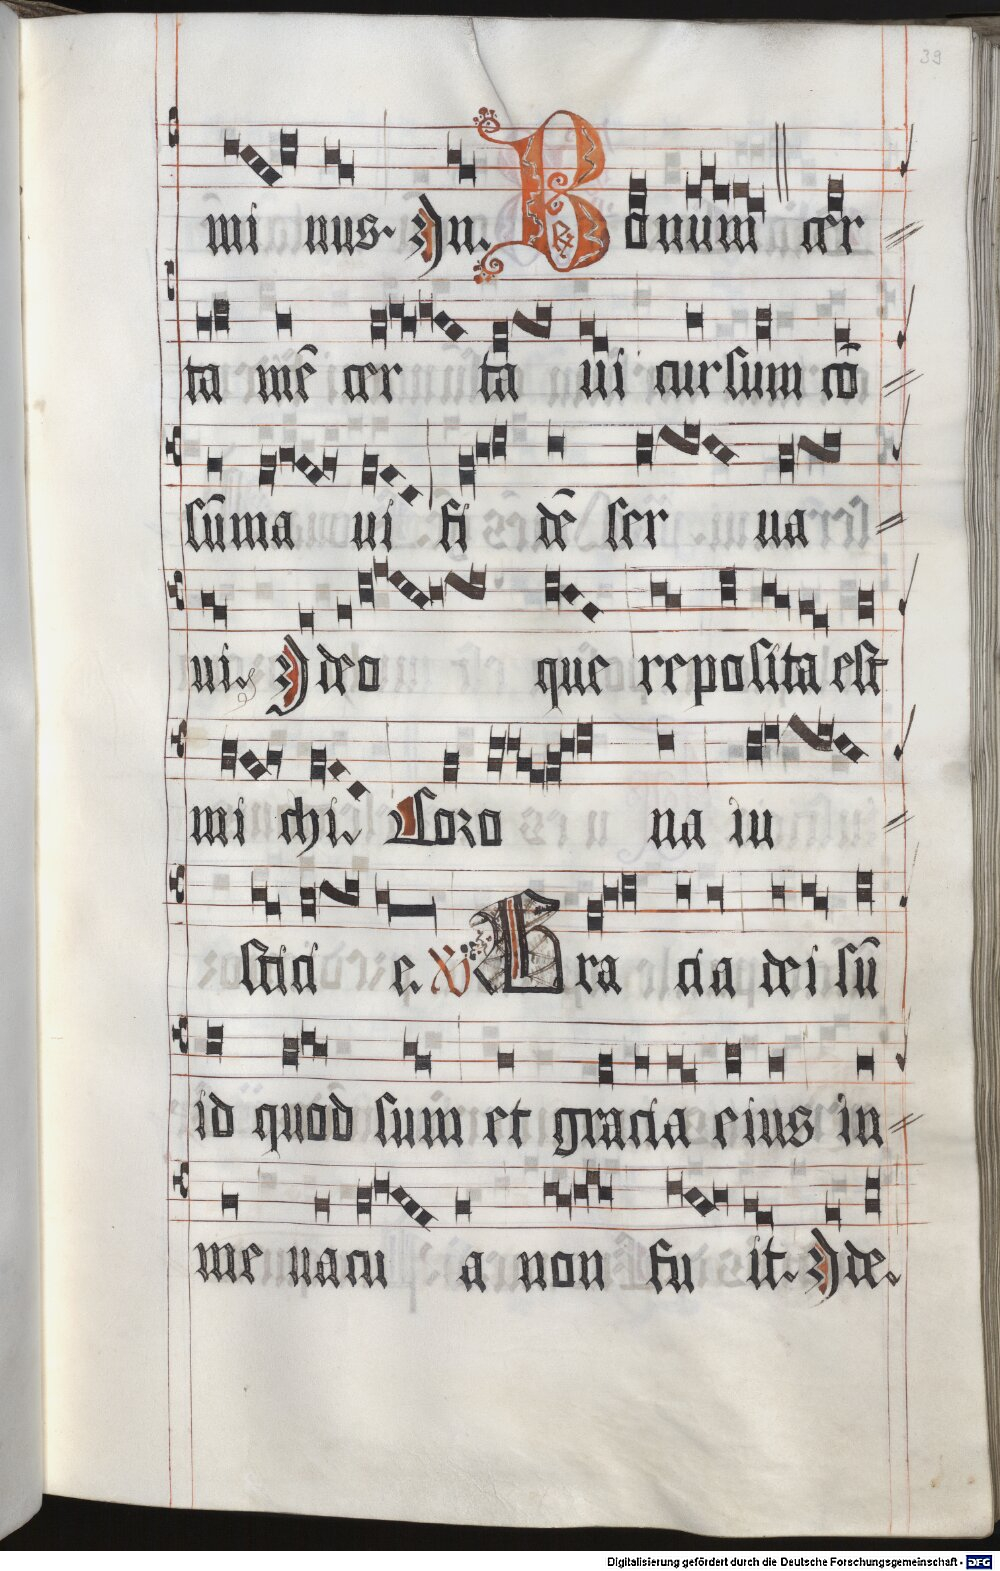 39
mi nus. In. Bonum cer
ta mē cer ta ui cursum cō
sūma ui fi dē ser ua
ui. Ideo que reposita est
mi chi. Coro na iu
stici e. Gra cia dei sū
id quod sum et gracia eius in
me uacu a non fu it. Ide.
Digitalisierung gefördert durch die Deutsche Forschungsgemeinschaft - DFG